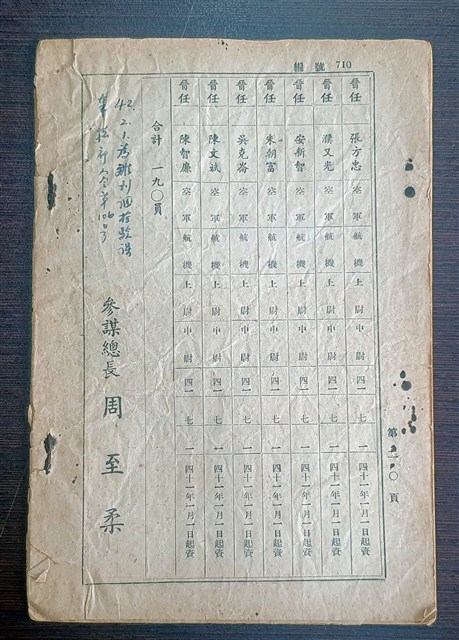 編號 710
晉任 張方忠 空軍航機上尉 中尉 四一 七 一 四十一年一月一日起資
晉任 濮又光 空軍航機上尉 中尉 四一 七 一 四十一年一月一日起資
晉任 安新智 空軍航機上尉 中尉 四一 七 一 四十一年一月一日起資
晉任 朱朝富 空軍航機上尉 中尉 四一 七 一 四十一年一月一日起資
晉任 吳克崙 空軍航機上尉 中尉 四一 七 一 四十一年一月一日起資
晉任 陳文斌 空軍航機上尉 中尉 四一 七 一 四十一年一月一日起資
晉任 陳智廉 空軍航機上尉 中尉 四一 七 一 四十一年一月一日起資
合計 一九〇員
參謀總長 周至柔
42.2.1.為
字
第 〇頁